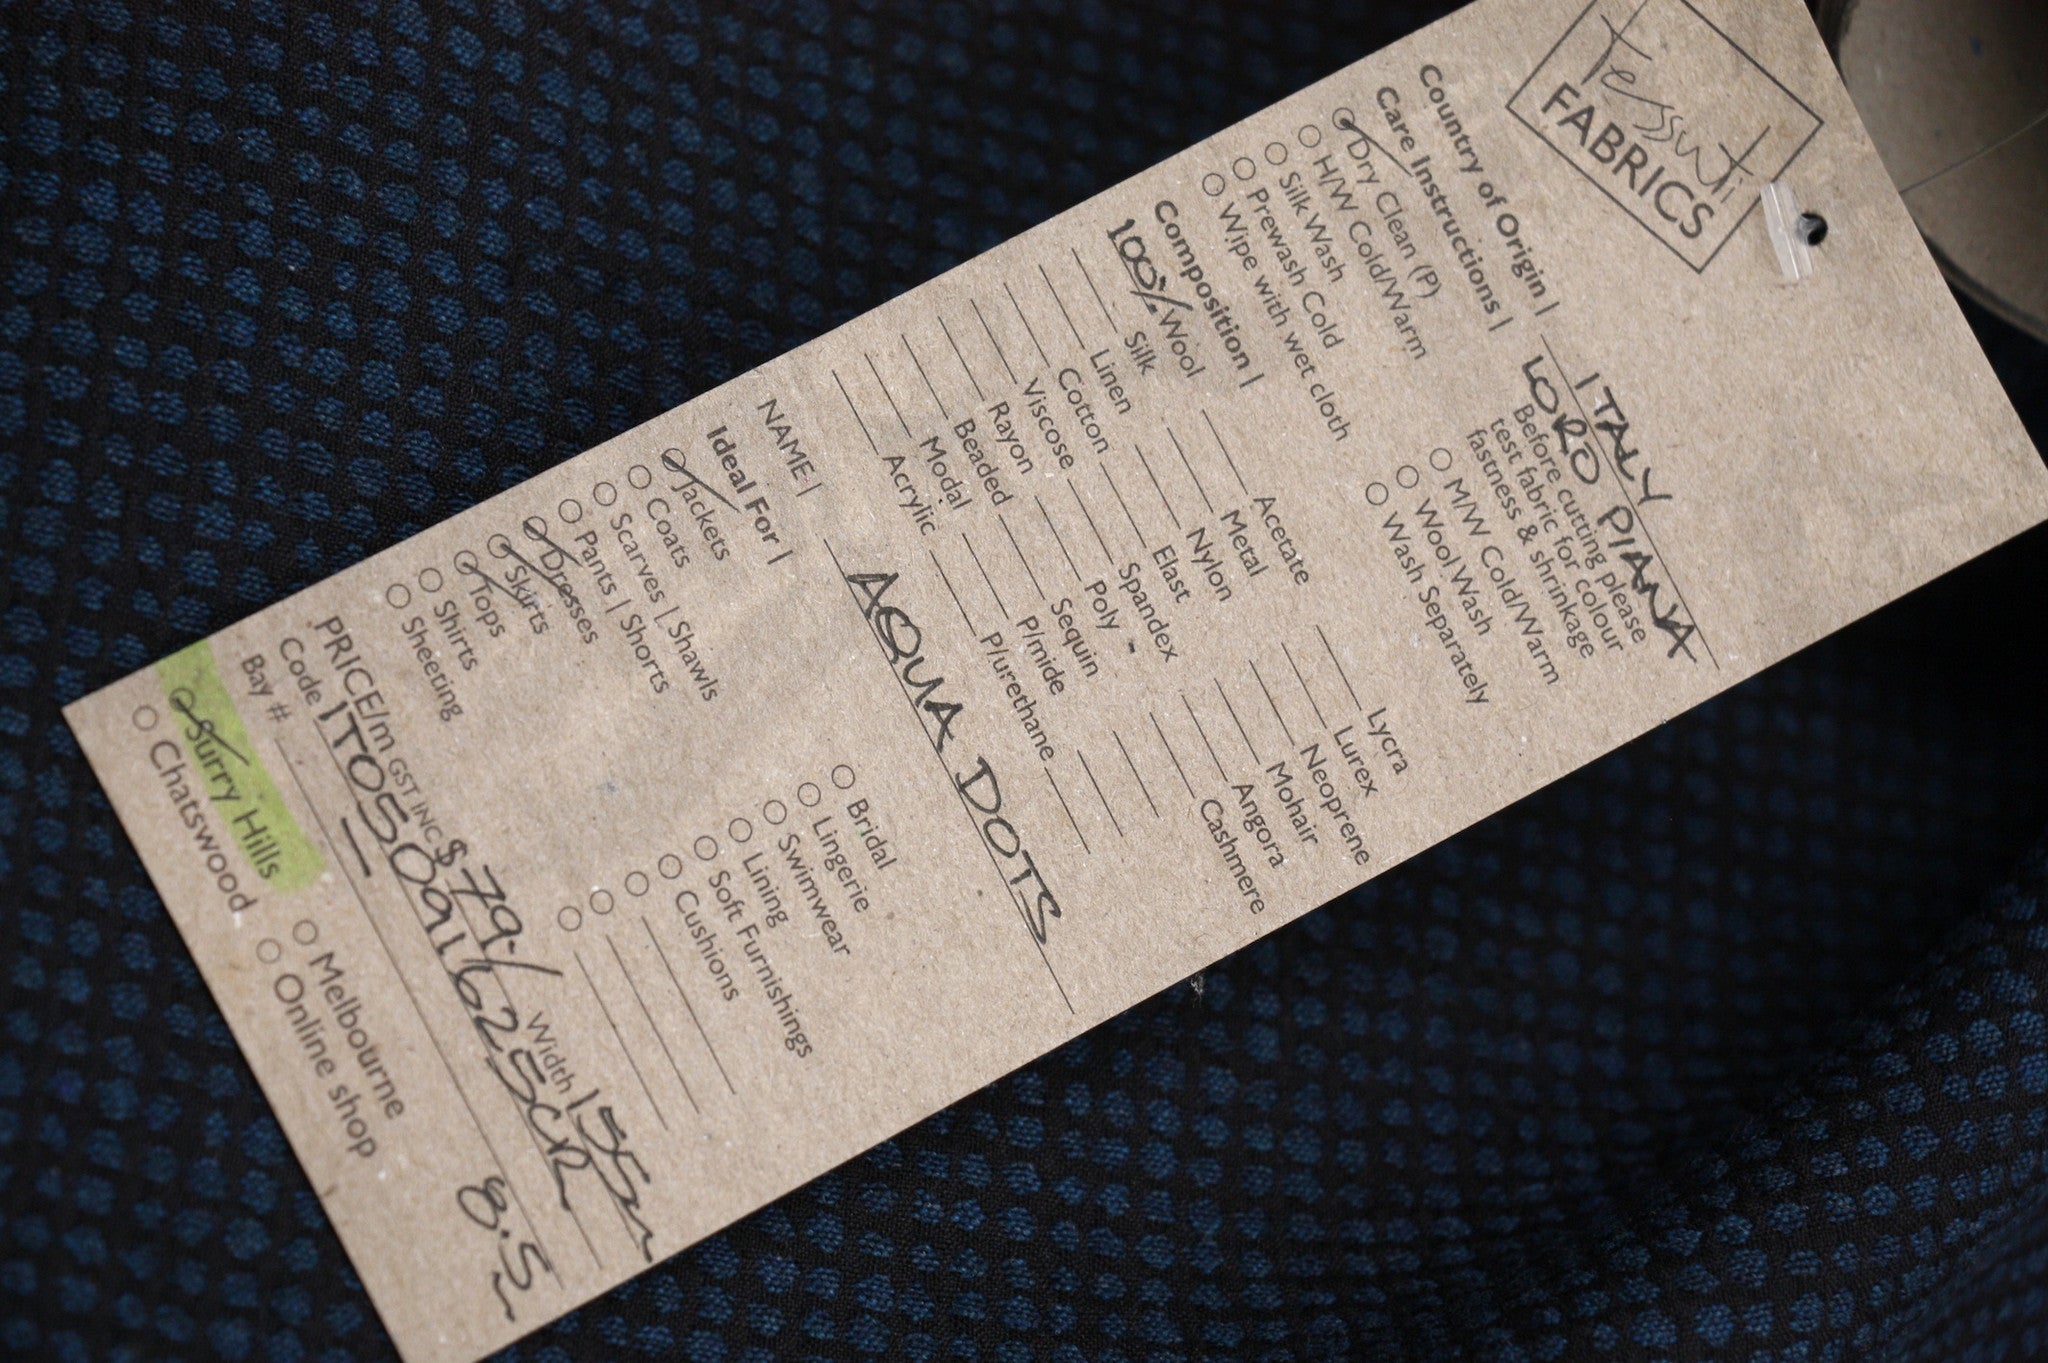 tessuti
FABRICS
Country of Origin | ITALY
LORO PIANA
Care Instructions |
Before cutting please
test fabric for colour
fastness & shrinkage
Dry Clean (P)
H/W Cold/Warm
Silk Wash
Prewash Cold
Wipe with wet cloth
M/W Cold/Warm
Wool Wash
Wash Separately
Composition |
100% Wool
Silk
Linen
Cotton
Viscose
Rayon
Beaded
Modal
Acrylic
Acetate
Metal
Nylon
Elast
Spandex
Poly
Sequin
P/mide
P/urethane
Lycra
Lurex
Neoprene
Mohair
Angora
Cashmere
NAME | AQUA DOTS
Ideal For |
Jackets
Coats
Scarves | Shawls
Pants | Shorts
Dresses
Skirts
Tops
Shirts
Sheeting
Bridal
Lingerie
Swimwear
Lining
Soft Furnishings
Cushions
PRICE/m GST INC $79./ Width 135m
Code ITOS09162SCR
Bay # 8.5m
Surry Hills
Chatswood
Melbourne
Online shop